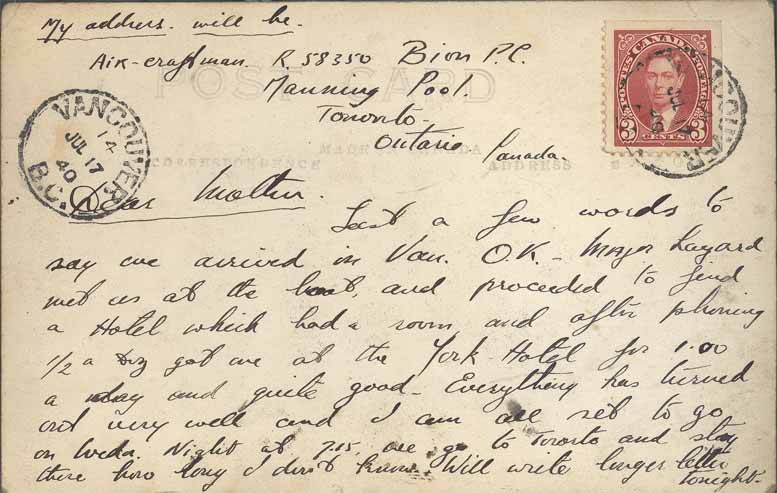 My address. will be.
Air-craftman R. 58350 Bion P.C.
POST CARD
Manning Pool.
Toronto-
Ontario Canada-
VANCOUVER
14
JUL 17
40
B.C.
POSTES CANADA POSTAGE
3 CENTS 3
VANCOUVER
MADE CANADA
CORRESPONDENCE ADDRESS
Dear Mother.
Just a few words to
say we arrived in Van. O.K- Major Layard
met us at the boat, and proceeded to find
a Hotel which had a room and after phoning
1/2 a dz got one at the York Hotel for 1.00
a day and quite good- Everything has turned
out very well and I am all set to go
on Weds. Night at 7.15, we go to Toronto and stay
there how long I don't know. Will write longer letter
tonight-